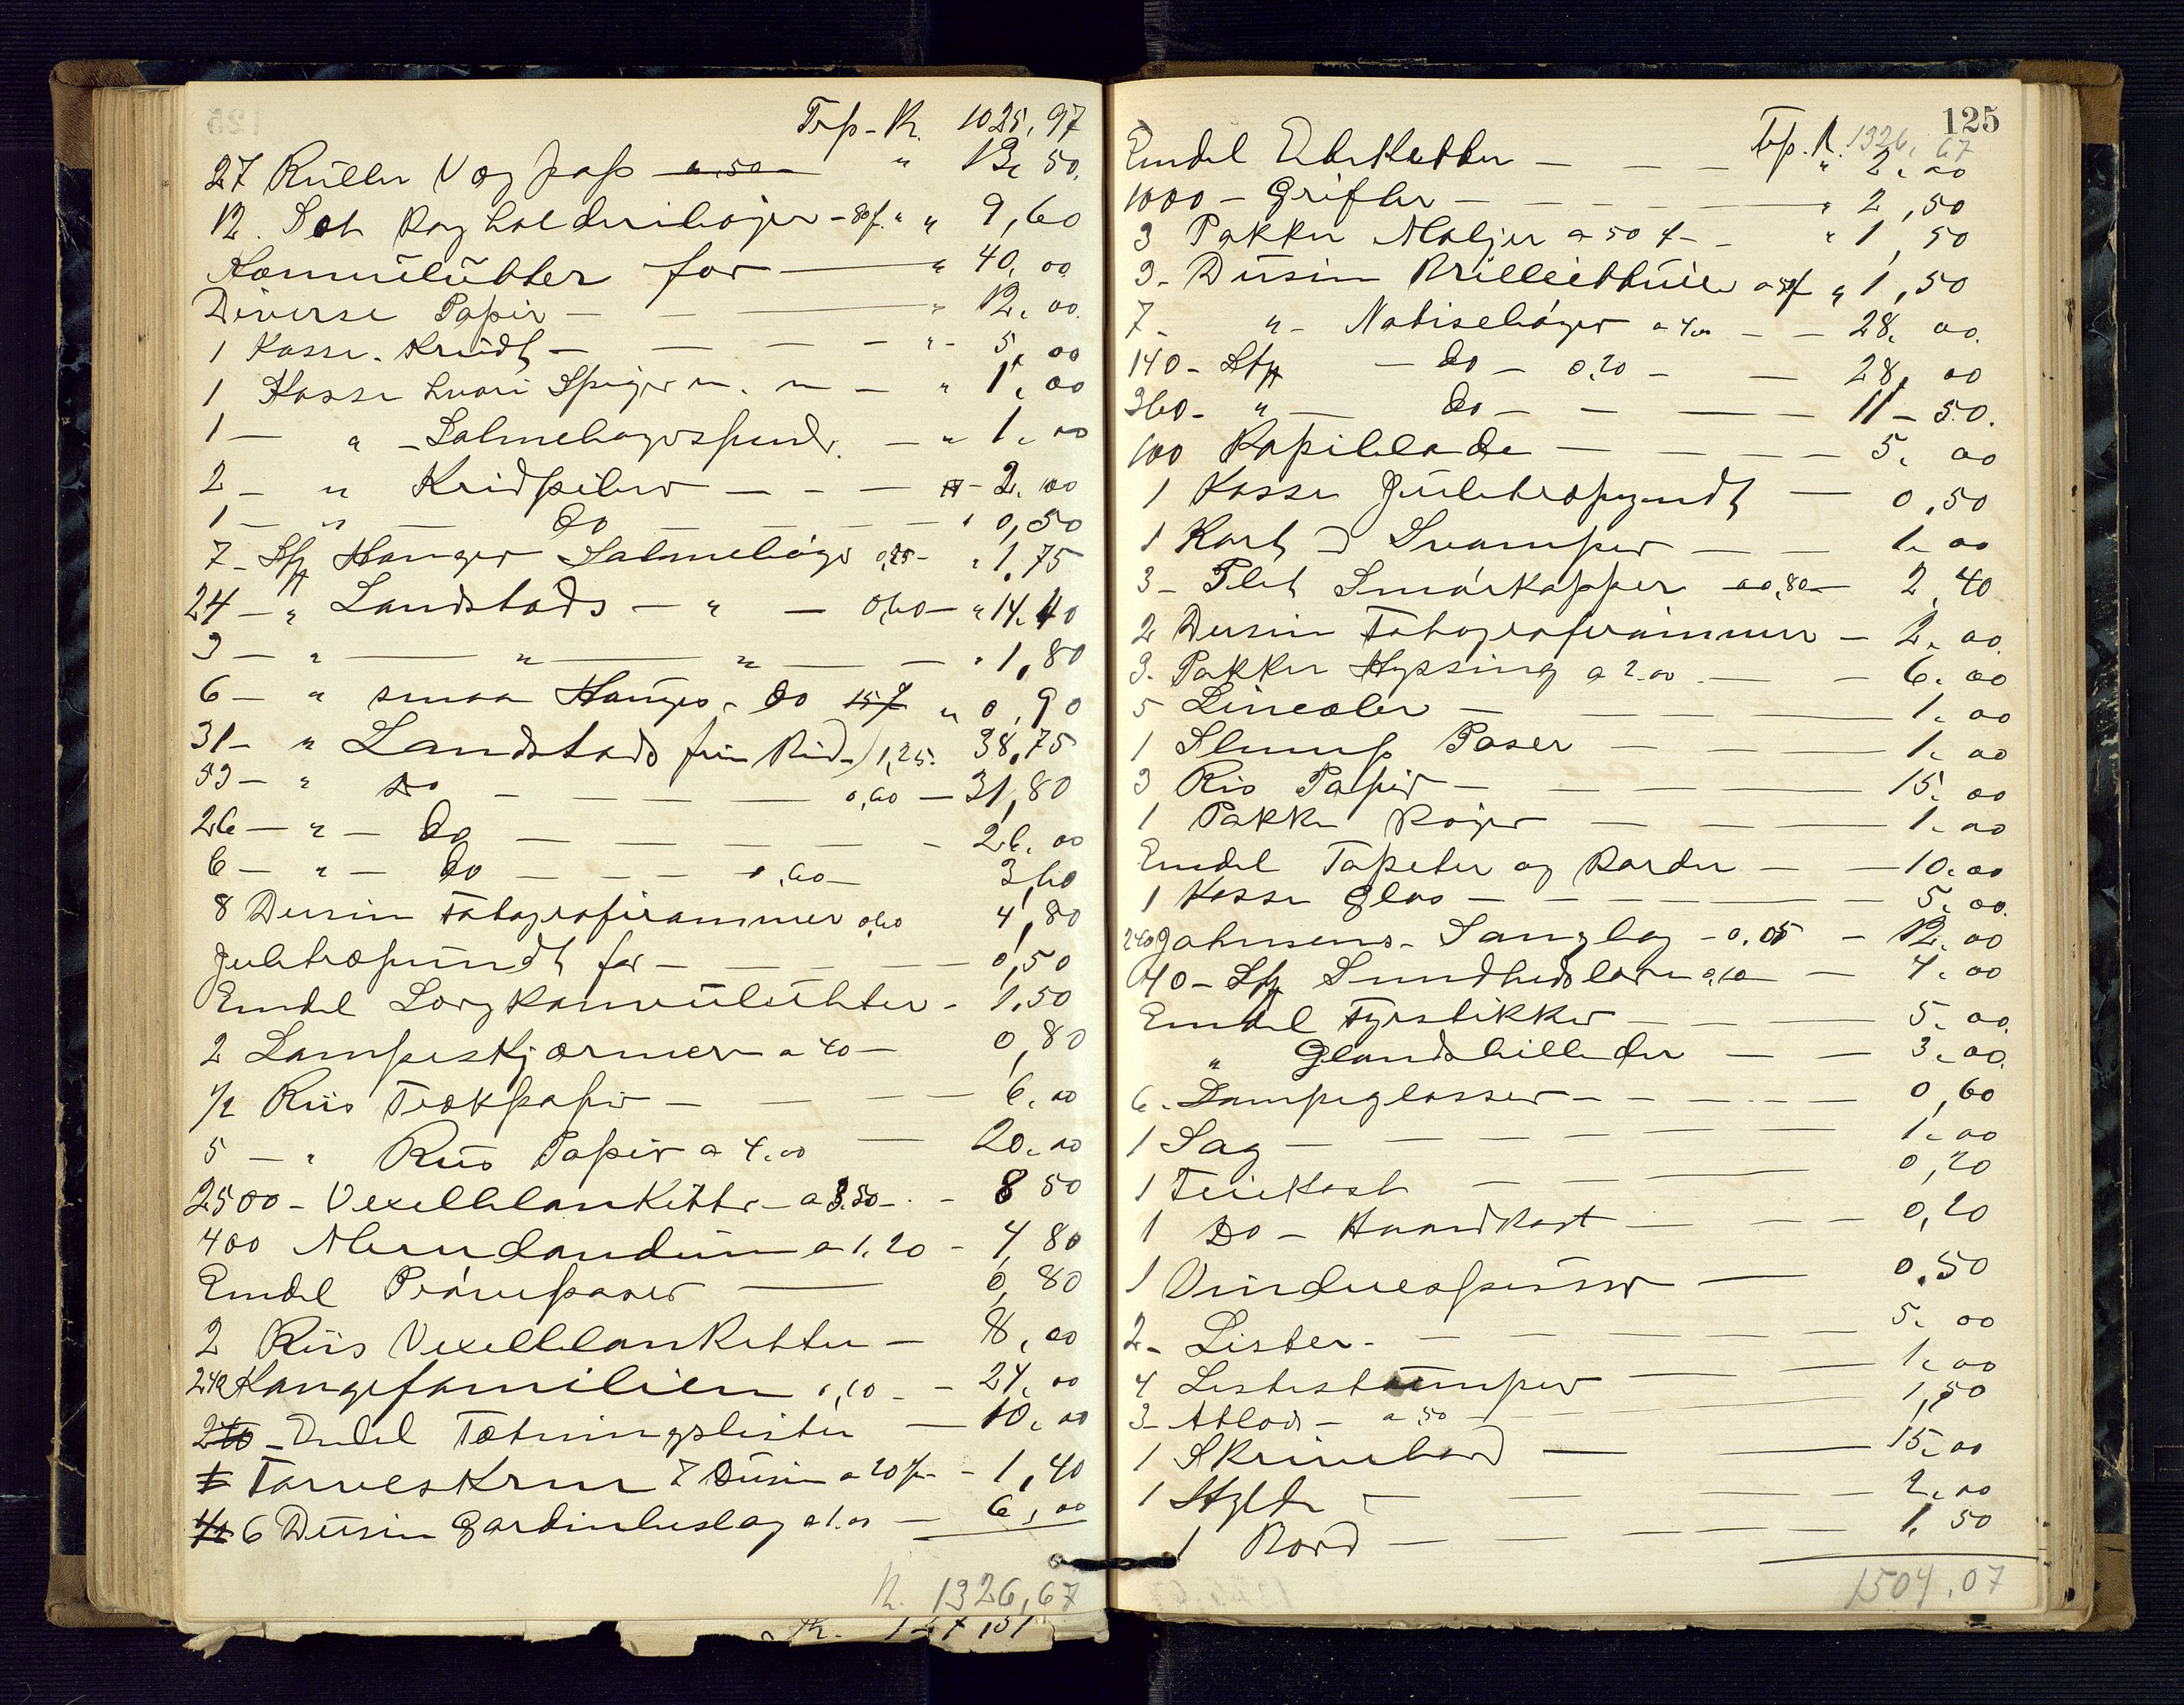 Trp. Kr. 1025,97
27 Ruller Vægpap a ,50 " 13,50.
12. Set Regholderibøger - 80 f. " " 9,60
Konvulutter for — " 40,00
Diverse Papir — " 12,00.
1 Kasse Kridt — " 5,00
1 Kasse hvori Spiger m. m — " 1,00
1 — " — Salmebogsspende. — " 1,00
2 — " Kridpiber — 2,00
1 — " — do — " 0,50
7 — Stk Hauges Salmebøger 0,25 — " 1,75
24 — " Landstads — " — 0,60 — " 14,40
3 — " — " — " — " 1,80
6 — " smaa Hauges - do 15 f " 0,90
31 — " Landstads fin Bind) 1,25. 38,75
53 — " Do — 0,60 — 31,80
26 — " — do — 26,00
6 — " — do — 0,60 — 3,60
8 Dusin Fotografirammer 0,60 4,80
Juletræspundt for — 0,50
Emdel Sorgkonvulutter - 1,50
2 Lampeskjærmer a 40 — 0,80
1/2 Riis Trækpapir — 6,00
5 — " Riis Papir a 4,00 — 20,00
2500 - Vexelblanketter - a 3.50 - 8 50
400 Merudandum a 1,20 - 4,80
Emdel Prøveposer — 0,80
2 Riis Vexelblanketter — 8,00
240 Kongefamilien 0,10 - 24,00
240 - Endel Tætningslister — 10,00
1 Tarveskrur 7 Dusin a 20 f - 1,40
1/2 6 Dusin Gardinbeslag a 1.00 — 6,00
Kr. 1326,67
Kr. 127,51
125
Trp. Kr. 1326,67
Emdel Etiketter — " 2,00
1000 - Grifler — " 2,50
3 Pakker Maljer a 50 f — " 1,50
3 - Dusin Brilleettuier a 50 f " 1,50
7 - " - Notisebøger a 4.00 — 28,00.
140 - Stk — do — 0,20 — 28,00
360 - " — do — 11 - 50.
100 Kopiblade — 5,00
1 Kasse Juletræspyndt — 0,50
1 Kort D Svamper — 1,00
3 - Pletl Smørkopper a 0,80 — 2,40
2 Dusin Fotografirammer — 2,00.
3. Pakker Hyssing a 2.00 — 6,00
5 Lineæler — 1,00
1 Slump Poser — 1,00
3 Ris Papir — 15,00
1 Pakke Bøger — 1,00
Emdel Tapeter og Border — 10,00
1 Kasse Glas — 5,00.
240 Johnsens - Sanglag - 0,05 — 12,00
40 - Stk Sundhedslære 0,10 — 4,00
Emdel Fyrstikker — 5,00.
" Glandsbilleder — 3,00.
6. Lampeglasser — 0,60
1 Sag — 1,00
1 Feiekost — 0,20
1 Do - Haandkost — 0,20
1 Vinduespusser — 0,50
2 - Lister - — 5,00
4 Listestumper — 1,00
3 - Atlas — a ,50 — 1,50
1 Skrivebord — 15,00
1 Hylde — 2,00
1 Bord — 1,50
1504,07